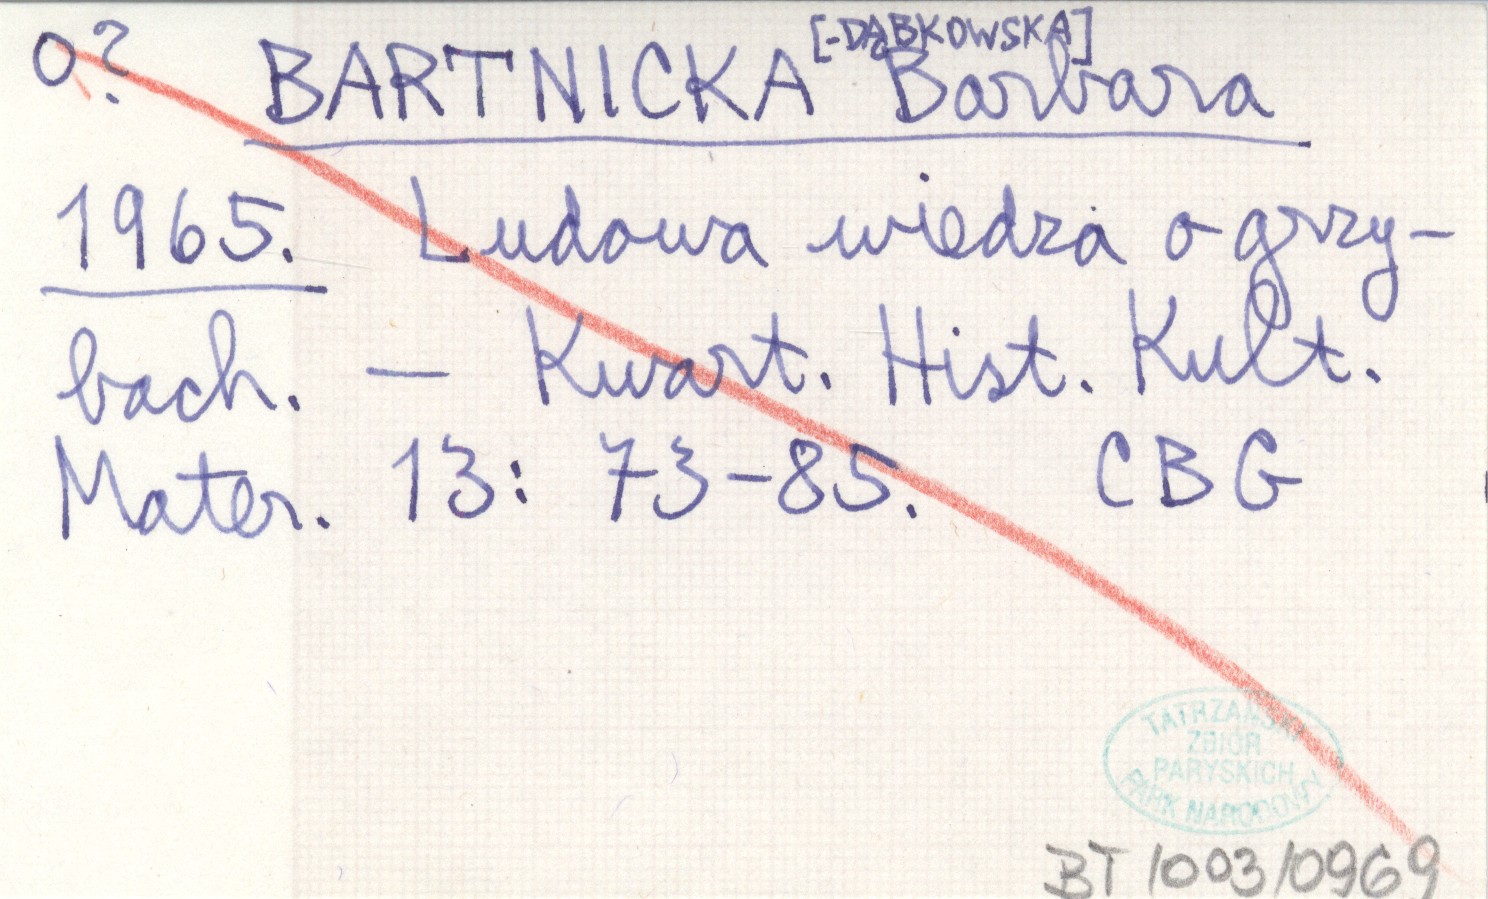 o? BARTNICKA [-DĄBKOWSKA] Barbara
1965. Ludowa wiedza o grzy-
bach. — Kwart. Hist. Kult.
Mater. 13: 73-85. CBG
TATRZAŃSKI
ZBIÓR
PARYSKICH
PARK NARODOWY
BT 1003/0969